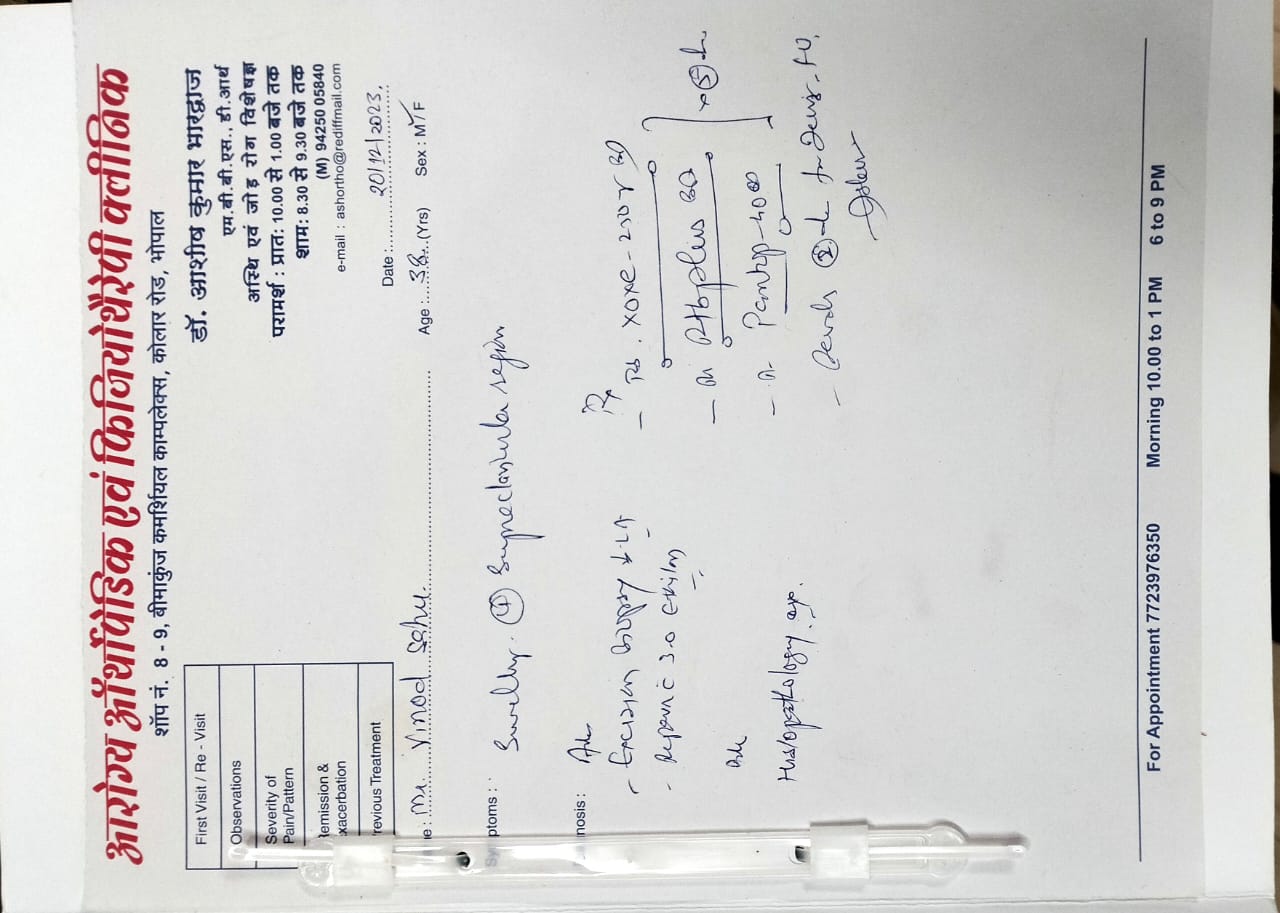 आरोग्य ऑर्थोपेडिक एवं फिजियोथैरेपी क्लीनिक
शॉप नं. 8 - 9, बीमाकुंज कमर्शियल काम्पलेक्स, कोलार रोड, भोपाल
डॉ. आशीष कुमार भारद्वाज
एम.बी.बी.एस., डी.आर्थ
अस्थि एवं जोड़ रोग विशेषज्ञ
परामर्श : प्रात: 10.00 से 1.00 बजे तक
शाम: 8.30 से 9.30 बजे तक
(M) 94250 05840
e-mail : ashortho@rediffmail.com
First Visit / Re - Visit
Observations
Severity of
Pain/Pattern
emission &
xacerbation
revious Treatment
Date : 20/12/2023
e : Mr. Vinod Sahu Age : 38 (Yrs) Sex : M / F
ptoms :
Swelling Supraclavicular region
nosis :
- Excision biopsy
- Repair 3.0
Histopathology
Rx
- Tab. XOXE-
-
- Pantop-40
-
For Appointment 7723976350 Morning 10.00 to 1 PM 6 to 9 PM